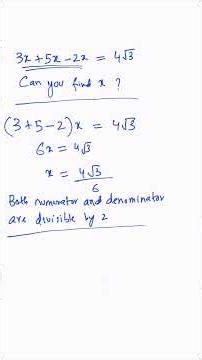 3x + 5x - 2x = 4√3
Can you find x ?
(3 + 5 - 2) x = 4√3
6x = 4√3
x = 4√3
6
Both numerator and denominator
are divisible by 2